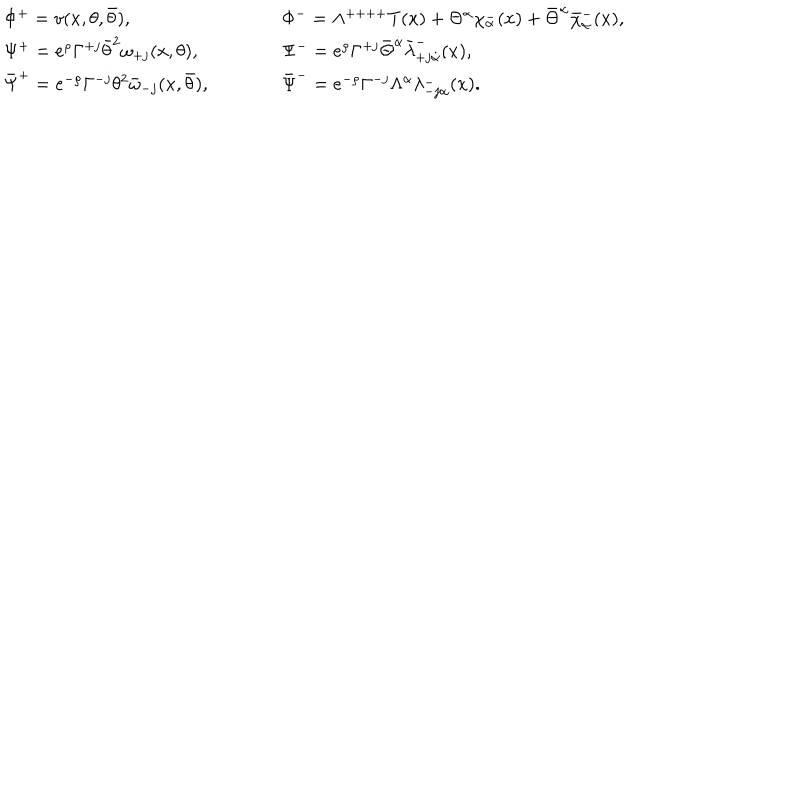 Φ⁺ = v(x, θ, θ̄),    Φ⁻ = Λ⁺⁺⁺⁺T(x) + Θ^α χ⁻_α(x) + Θ̄^α̇ χ̄⁻_α̇(x),
Ψ⁺ = e^ρ Γ^{+j} θ̄² ω_{+j}(x, θ),    Ψ⁻ = e^ρ Γ^{+j} Θ̄^α̇ λ̄⁻_{+jα̇}(x),
Ψ̄⁺ = e^{-ρ} Γ^{-j} θ² ω̄_{-j}(x, θ̄),    Ψ̄⁻ = e^{-ρ} Γ^{-j} Λ^α λ⁻_{-jα}(x).